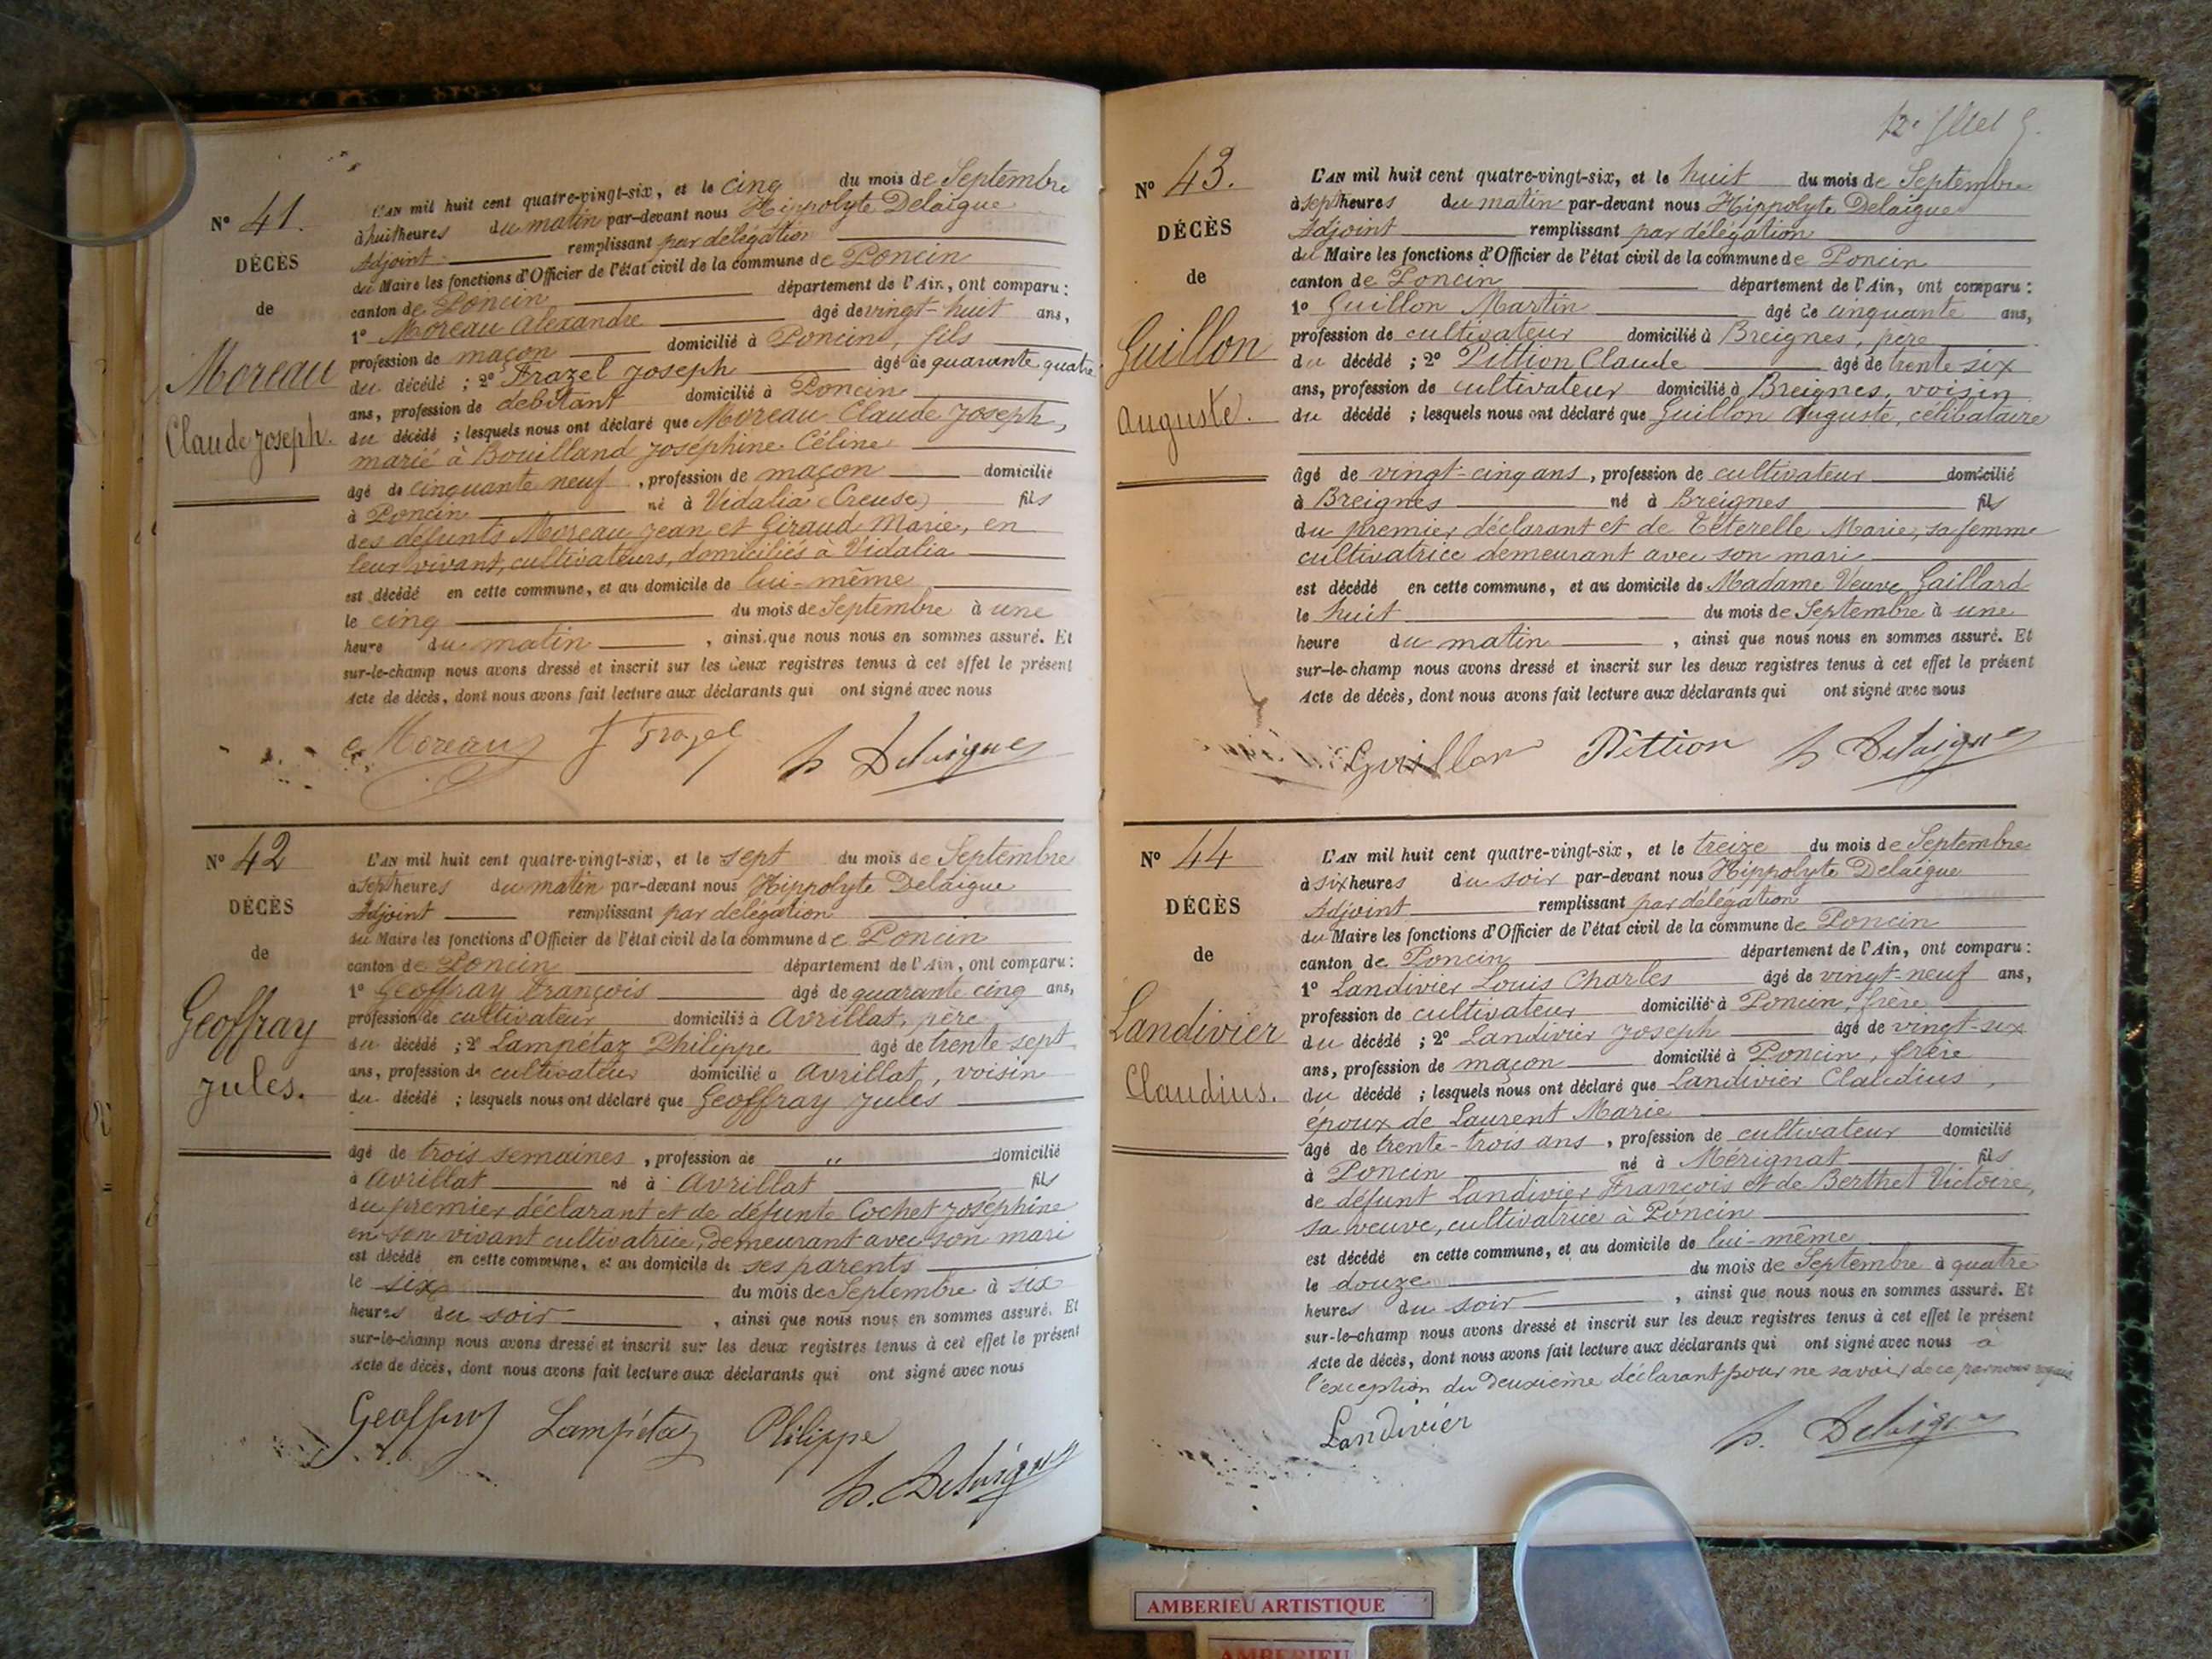 N° 41.
DÉCÈS
de
Moreau
Claude Joseph.
L'AN mil huit cent quatre-vingt-six, et le cinq du mois de Septembre
à huit heures du matin par-devant nous Hippolyte Delaigue
Adjoint remplissant par délégation
du Maire les fonctions d'Officier de l'état civil de la commune de Poncin
canton de Poncin département de l'Ain, ont comparu :
1° Moreau Alexandre âgé de vingt-huit ans,
profession de maçon domicilié à Poncin, fils
du décédé ; 2° Frazel Joseph âgé de quarante quatre
ans, profession de débitant domicilié à Poncin
du décédé ; lesquels nous ont déclaré que Moreau Claude Joseph,
marié à Bouilland Joséphine Céline
âgé de cinquante neuf, profession de maçon domicilié
à Poncin né à Vidalia (Creuse) fils
des défunts Moreau Jean et Giraud Marie, en
leur vivant, cultivateurs, domiciliés à Vidalia
est décédé en cette commune, et au domicile de lui-même
le cinq du mois de Septembre à une
heure du matin, ainsi que nous nous en sommes assuré. Et
sur-le-champ nous avons dressé et inscrit sur les deux registres tenus à cet effet le présent
Acte de décès, dont nous avons fait lecture aux déclarants qui ont signé avec nous
Moreau J Frazel h Delaigue
N° 42
DÉCÈS
de
Geoffray
Jules.
L'AN mil huit cent quatre-vingt-six, et le sept du mois de Septembre
à sept heures du matin par-devant nous Hippolyte Delaigue
Adjoint remplissant par délégation
du Maire les fonctions d'Officier de l'état civil de la commune de Poncin
canton de Poncin département de l'Ain, ont comparu :
1° Geoffray François âgé de quarante cinq ans,
profession de cultivateur domicilié à Avrillat, père
du décédé ; 2° Lampétaz Philippe âgé de trente sept
ans, profession de cultivateur domicilié à Avrillat, voisin
du décédé ; lesquels nous ont déclaré que Geoffray Jules
âgé de trois semaines, profession de " domicilié
à Avrillat né à Avrillat fils
du premier déclarant et de défunte Cochet Joséphine
en son vivant cultivatrice, demeurant avec son mari
est décédé en cette commune, et au domicile de ses parents
le six du mois de Septembre à six
heures du soir, ainsi que nous nous en sommes assuré. Et
sur-le-champ nous avons dressé et inscrit sur les deux registres tenus à cet effet le présent
Acte de décès, dont nous avons fait lecture aux déclarants qui ont signé avec nous
Geoffray Lampétaz Philippe
h. Delaigue
N° 43.
DÉCÈS
de
Guillon
Auguste.
L'AN mil huit cent quatre-vingt-six, et le huit du mois de Septembre
à sept heures du matin par-devant nous Hippolyte Delaigue
Adjoint remplissant par délégation
du Maire les fonctions d'Officier de l'état civil de la commune de Poncin
canton de Poncin département de l'Ain, ont comparu :
1° Guillon Martin âgé de cinquante ans,
profession de cultivateur domicilié à Breignes, père
du décédé ; 2° Pittion Claude âgé de trente six
ans, profession de cultivateur domicilié à Breignes, voisin
du décédé ; lesquels nous ont déclaré que Guillon Auguste, célibataire
âgé de vingt-cinq ans, profession de cultivateur domicilié
à Breignes né à Breignes fils
du premier déclarant et de Téterelle Marie, sa femme
cultivatrice demeurant avec son mari
est décédé en cette commune, et au domicile de Madame Veuve Gaillard
le huit du mois de Septembre à une
heure du matin, ainsi que nous nous en sommes assuré. Et
sur-le-champ nous avons dressé et inscrit sur les deux registres tenus à cet effet le présent
Acte de décès, dont nous avons fait lecture aux déclarants qui ont signé avec nous
Guillon Pittion h Delaigue
N° 44
DÉCÈS
de
Landivier
Claudius.
L'AN mil huit cent quatre-vingt-six, et le treize du mois de Septembre
à six heures du soir par-devant nous Hippolyte Delaigue
Adjoint remplissant par délégation
du Maire les fonctions d'Officier de l'état civil de la commune de Poncin
canton de Poncin département de l'Ain, ont comparu :
1° Landivier Louis Charles âgé de vingt-neuf ans,
profession de cultivateur domicilié à Poncin, frère
du décédé ; 2° Landivier Joseph âgé de vingt-six
ans, profession de maçon domicilié à Poncin, frère
du décédé ; lesquels nous ont déclaré que Landivier Claudius,
époux de Laurent Marie
âgé de trente-trois ans, profession de cultivateur domicilié
à Poncin né à Mérignat fils
de défunt Landivier François et de Berthet Victoire,
sa veuve, cultivatrice à Poncin
est décédé en cette commune, et au domicile de lui-même
le douze du mois de Septembre à quatre
heures du soir, ainsi que nous nous en sommes assuré. Et
sur-le-champ nous avons dressé et inscrit sur les deux registres tenus à cet effet le présent
Acte de décès, dont nous avons fait lecture aux déclarants qui ont signé avec nous à
l'exception du deuxième déclarant pour ne savoir de ce par nous requis
Landivier h. Delaigue
AMBERIEU ARTISTIQUE
AMBERIEU